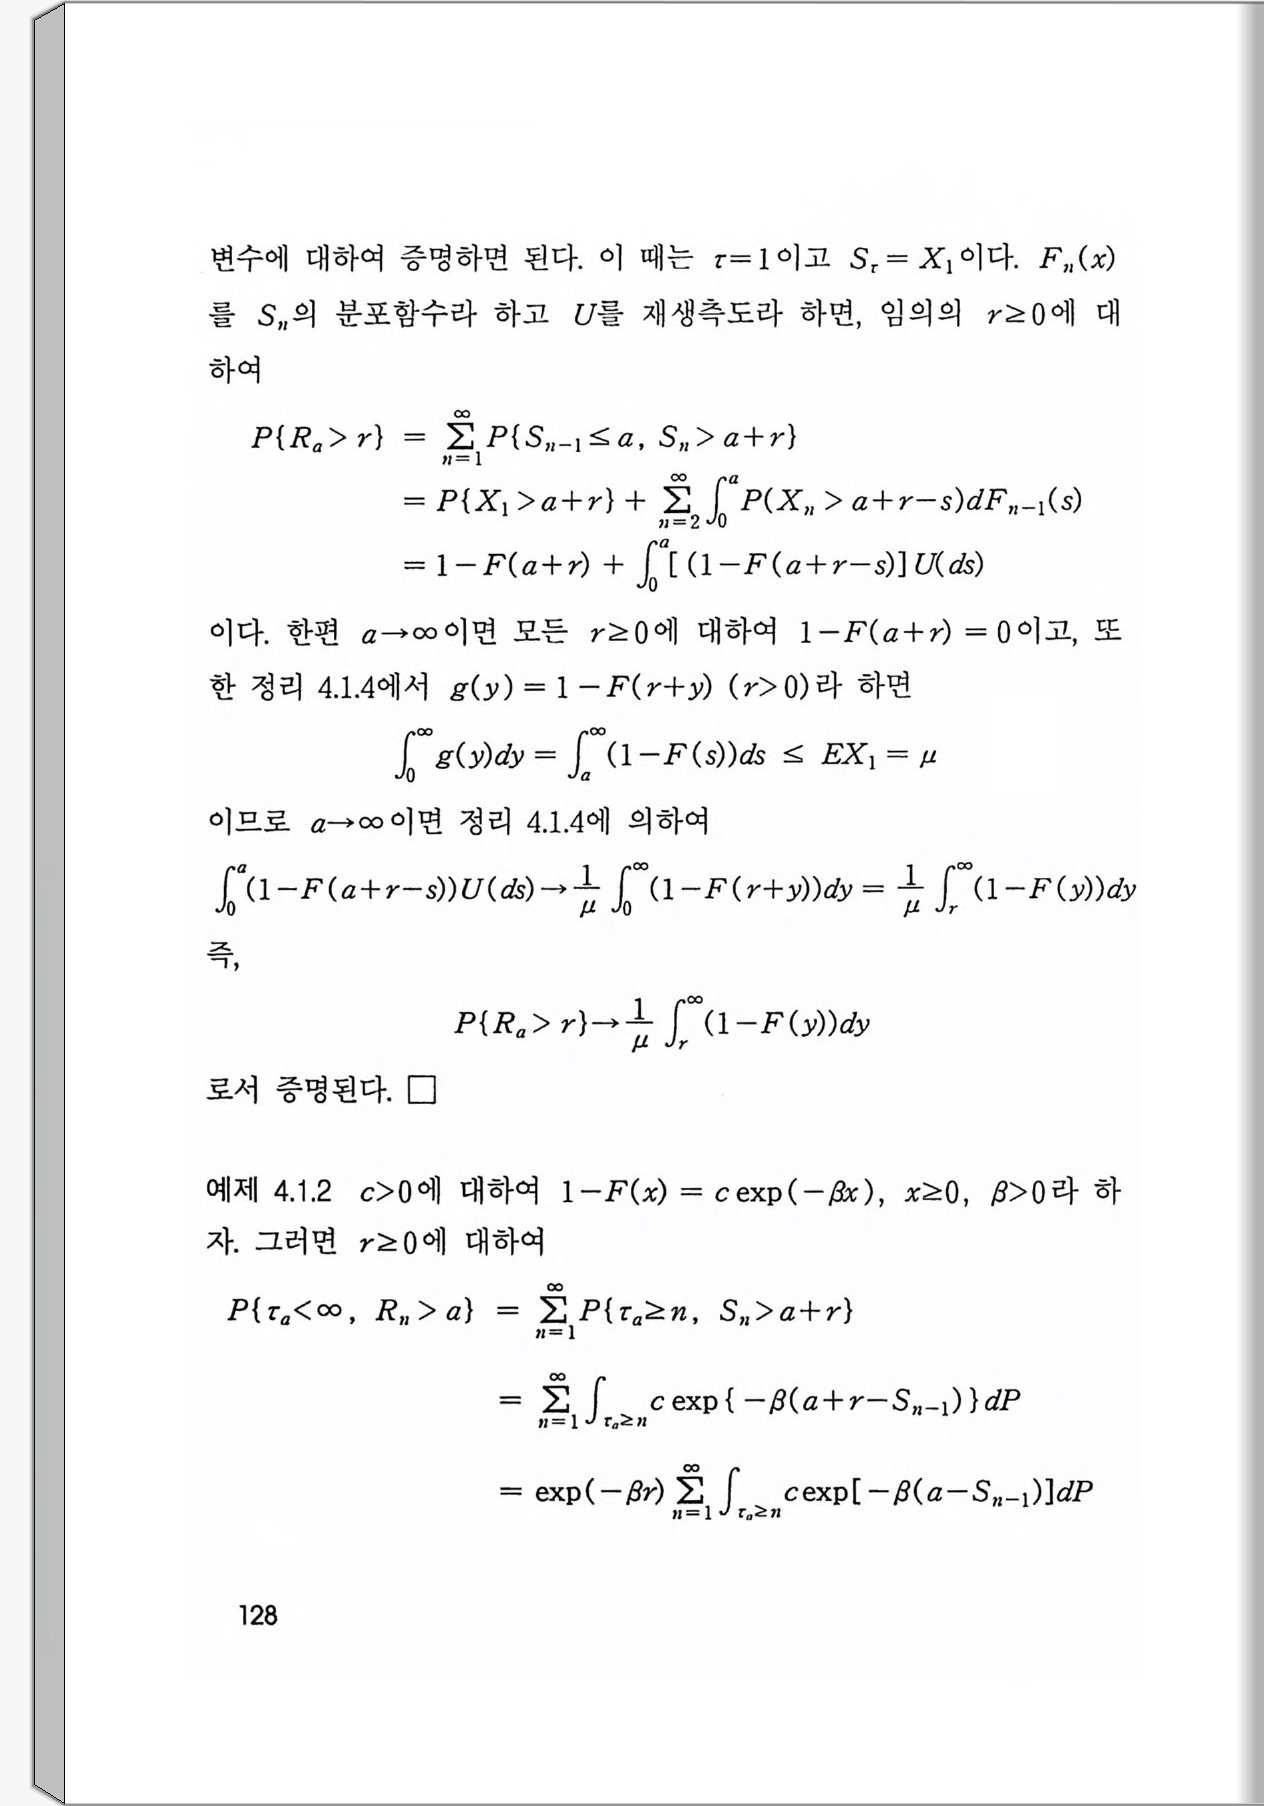 변수에 대하여 증명하면 된다. 이 때는 τ=1이고 S_τ = X_1이다. F_n(x)
를 S_n의 분포함수라 하고 U를 재생측도라 하면, 임의의 r≥0에 대
하여
P{R_a > r} = ∑_{n=1}^{∞} P{S_{n-1} ≤ a, S_n > a+r}
= P{X_1 > a+r} + ∑_{n=2}^{∞} ∫_0^a P(X_n > a+r-s)dF_{n-1}(s)
= 1-F(a+r) + ∫_0^a [(1-F(a+r-s)]U(ds)
이다. 한편 a→∞이면 모든 r≥0에 대하여 1-F(a+r) = 0이고, 또
한 정리 4.1.4에서 g(y) = 1-F(r+y) (r>0)라 하면
∫_0^∞ g(y)dy = ∫_a^∞ (1-F(s))ds ≤ EX_1 = μ
이므로 a→∞이면 정리 4.1.4에 의하여
∫_0^a (1-F(a+r-s))U(ds) → 1/μ ∫_0^∞ (1-F(r+y))dy = 1/μ ∫_r^∞ (1-F(y))dy
즉,
P{R_a > r} → 1/μ ∫_r^∞ (1-F(y))dy
로서 증명된다. □
예제 4.1.2 c>0에 대하여 1-F(x) = c exp(-βx), x≥0, β>0라 하
자. 그러면 r≥0에 대하여
P{τ_a<∞, R_n > a} = ∑_{n=1}^{∞} P{τ_a≥n, S_n>a+r}
= ∑_{n=1}^{∞} ∫_{τ_a≥n} c exp{-β(a+r-S_{n-1})}dP
= exp(-βr) ∑_{n=1}^{∞} ∫_{τ_a≥n} cexp[-β(a-S_{n-1})]dP
128